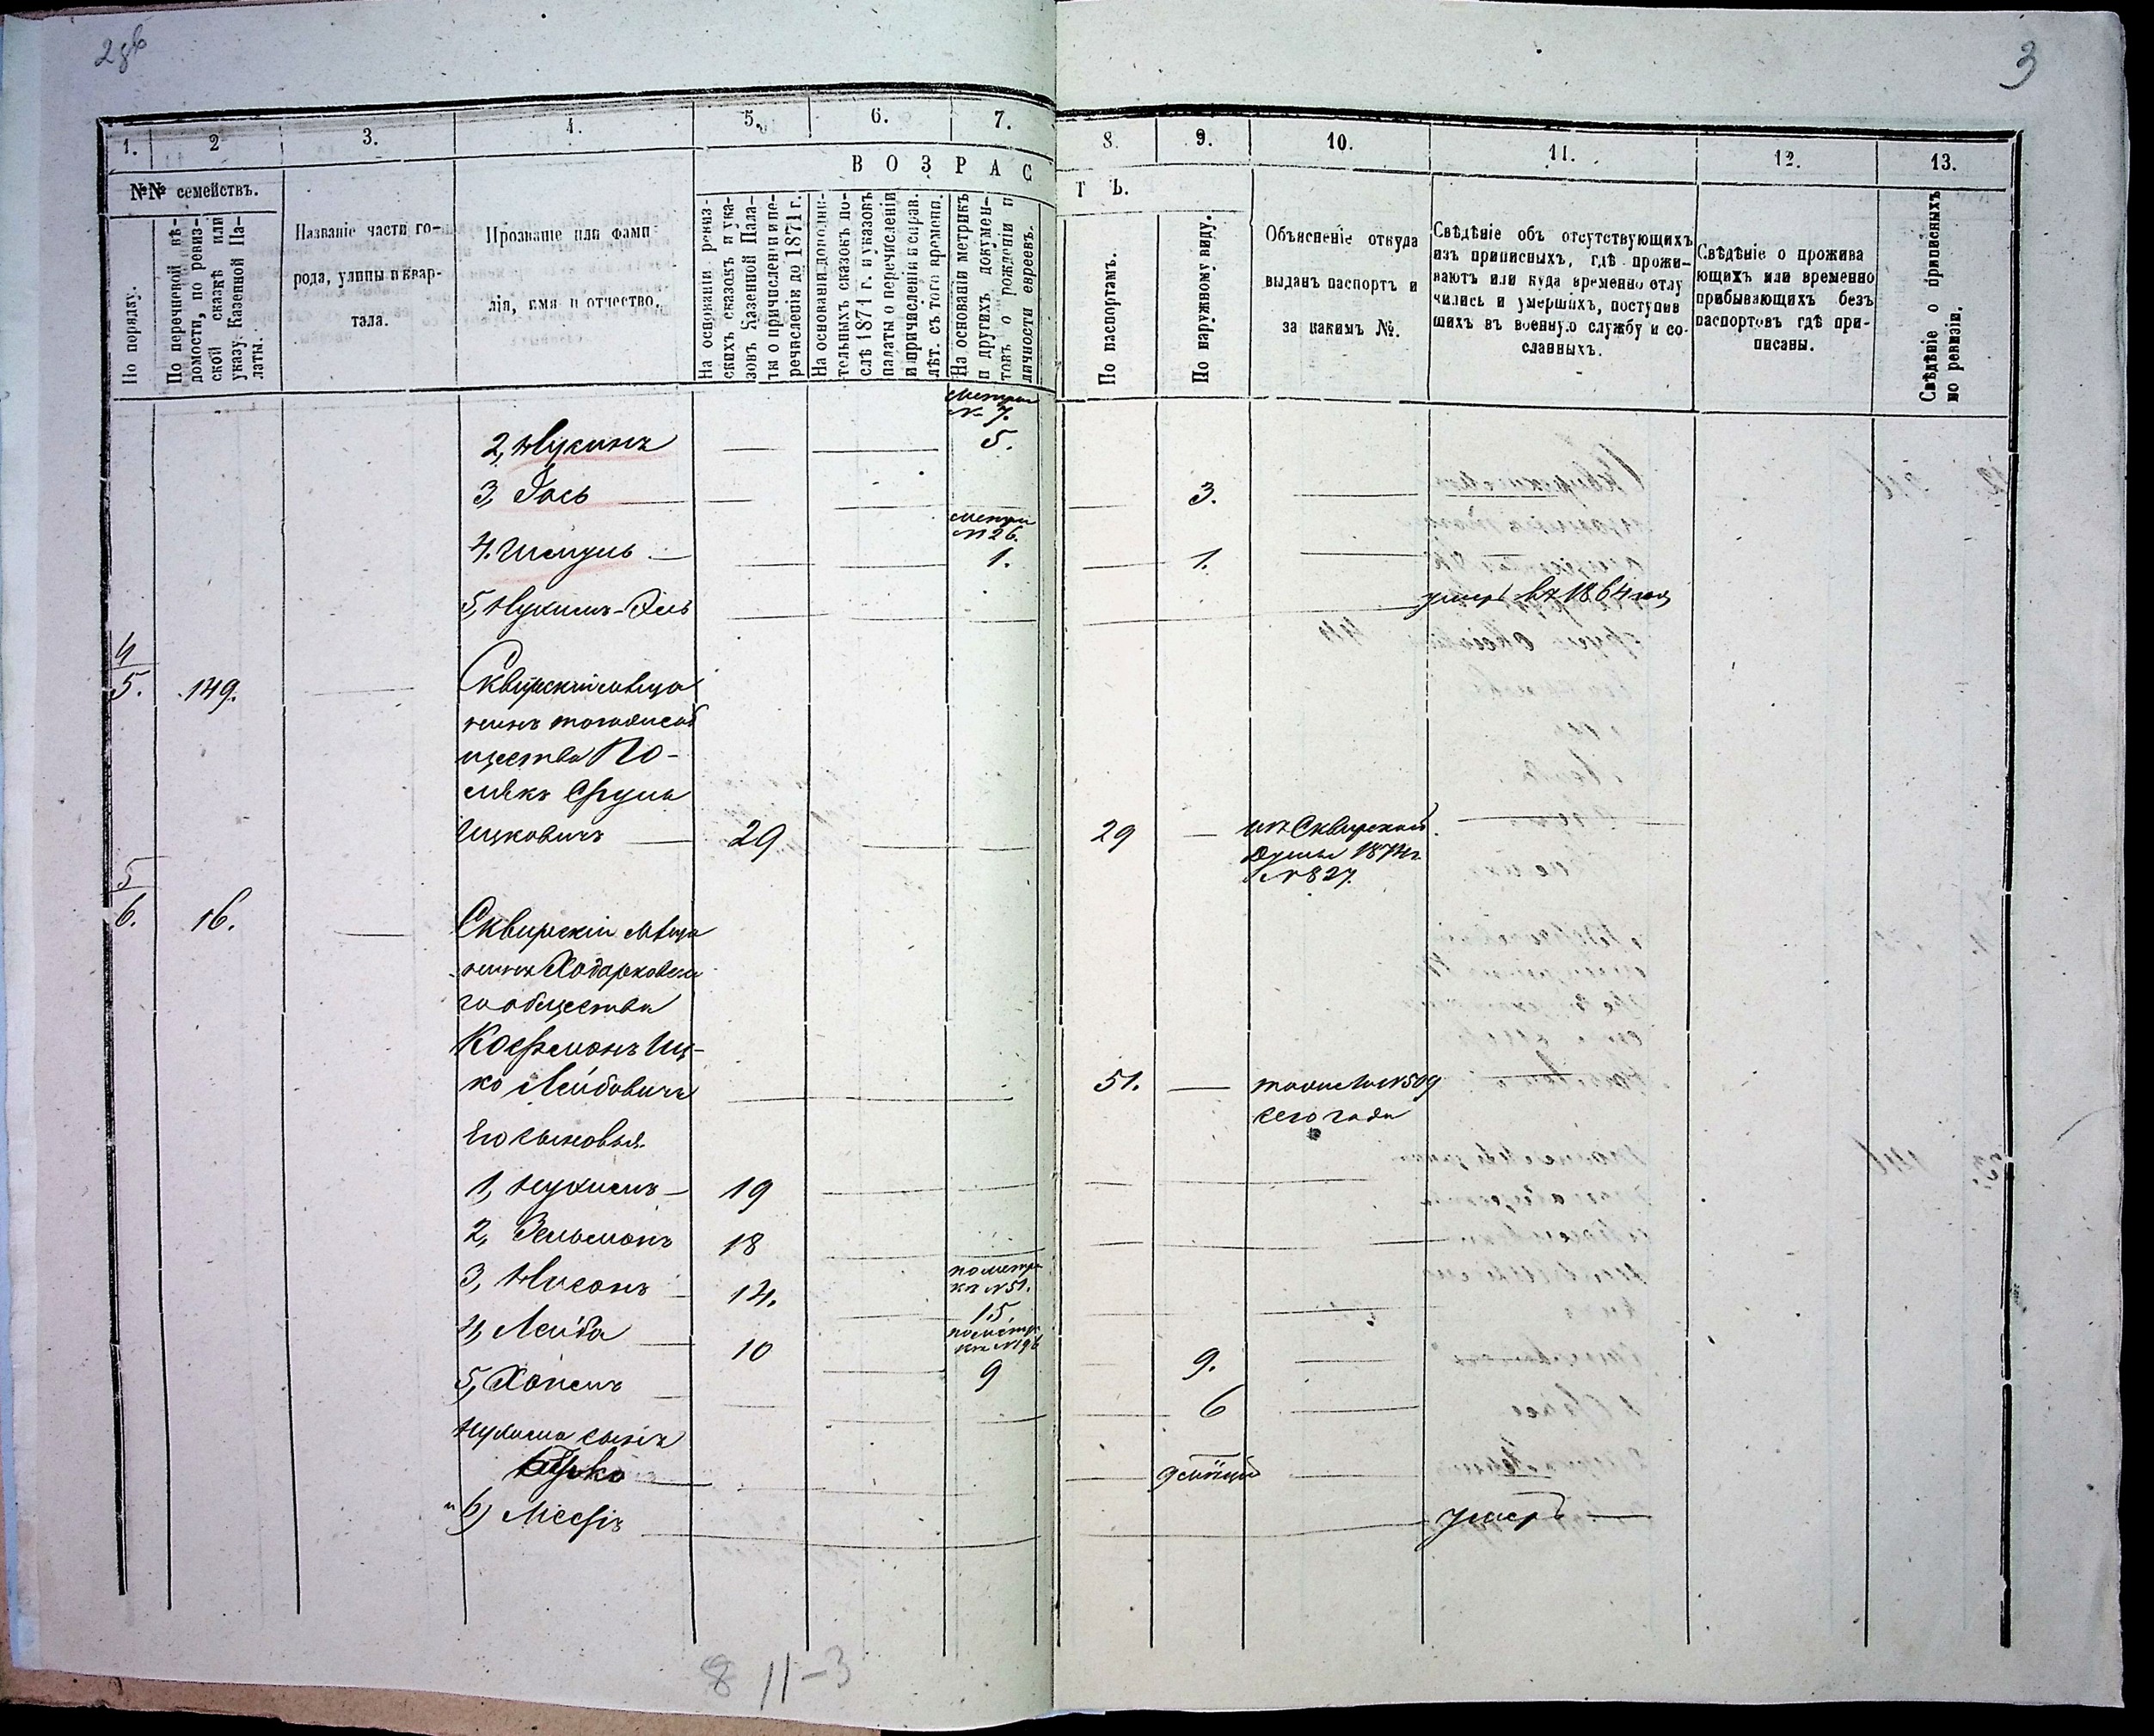 3
1. 2 3. 4. 5. 6. 7.
8. 9. 10. 11. 12. 13.
ВОЗРАС
ТЪ.
№№ семействъ.
По порядку.
По перечневой вѣ-
домости, по ревиз-
ской сказкѣ или
указу Казенной Па-
латы.
Названіе части го-
рода, улицы и квар-
тала.
Прозваніе или фами-
лія, имя и отчество.
На основаніи ревиз-
скихъ сказокъ и ука-
зовъ Казенной Пала-
ты о причисленіи и пе-
речисленіи до 1871 г.
На основаніи дополни-
тельныхъ сказокъ по-
слѣ 1871 г. и указовъ
палаты о перечисленіи
и причисленіи и справ.
лѣт. съ того времени.
На основаніи метрикъ
и других докумен-
товъ о рожденіи и
личности евреевъ.
По паспортамъ.
По наружному виду.
Объясненіе откуда
выданъ паспортъ и
за какимъ №.
Свѣдѣніе объ отсутствующихъ
изъ приписныхъ, гдѣ прожи-
ваютъ или куда временно отлу
чились и умершихъ, поступив
шихъ въ военную службу и со-
сланныхъ.
Свѣдѣніе о прожива
ющихъ или временно
прибывающихъ безъ
паспортовъ гдѣ при-
писаны.
Свѣдѣніе о приписныхъ
по ревизіи.
№ 7.
2, 5.
3, 3.
№ 26.
4. 1. 1.
5, Нухимъ умеръ въ 1864
4
5. 149. Сквирскій мѣща
нинъ того же об
щества По-
лякъ Сруль
Ицковичъ 29 29 изъ Сквирской
Думы 187
№ 827.
5
6. 16. Сквирскій мѣща
нинъ Ходорковска
го общества
Кофманъ Иц-
ко Лейбовичъ 51. № 509
сего года
Его сыновья
1, Нухимъ 19
2, Зельманъ 18
3, Нисонъ 14. по метри
кѣ № 51.
15
4, Лейба 10 по метри
кѣ № 196
9 9.
5, 6
Нухима сынъ
Берко
6) умеръ
8 11-3